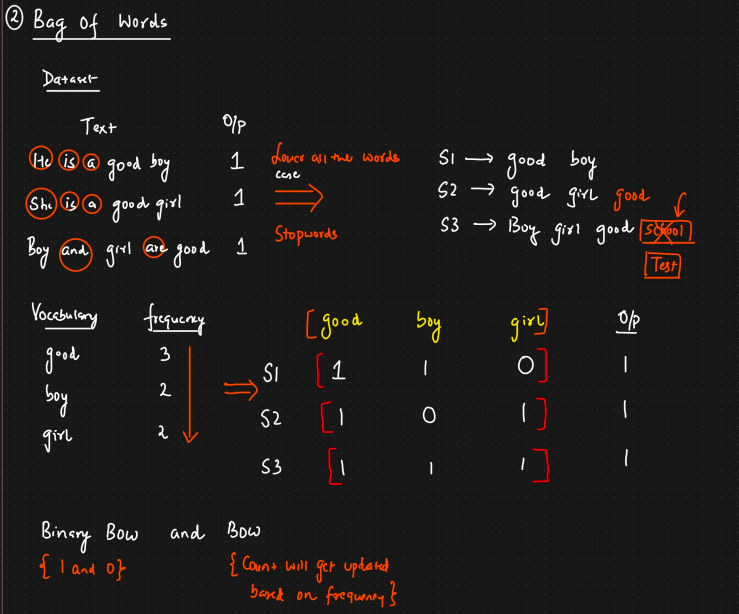 ② Bag of Words
Dataset
Text O/p
He is a good boy 1
She is a good girl 1
Boy and girl are good 1
Lower all the words
case
Stopwords
S1 → good boy
S2 → good girl good
S3 → Boy girl good School
Test
Vocabulary frequency
good 3
boy 2
girl 2
[good boy girl] O/p
S1 [1 1 0] 1
S2 [1 0 1] 1
S3 [1 1 1] 1
Binary Bow and Bow
{1 and 0}
{Count will get updated
based on frequency}